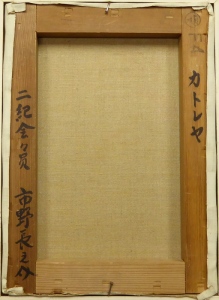 カトレヤ
二紀会々員 市野長之介